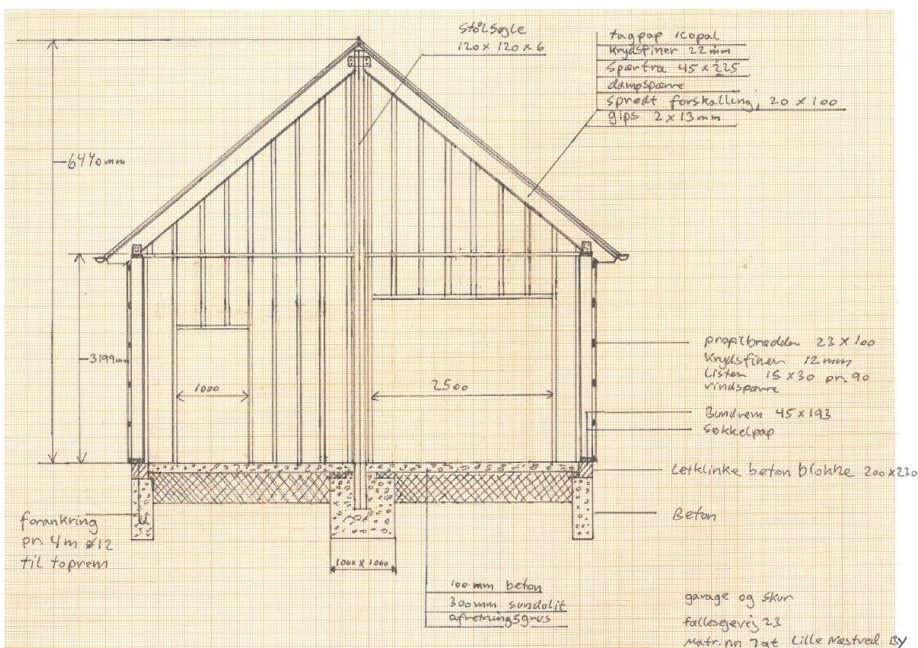 stålsøjle
120 x 120 x 6
tagpap Icopal
Krydsfiner 22 mm
Spærtræ 45 x 225
dampspærre
spredt forskalling, 20 x 100
gips 2 x 13 mm
6470 mm
3199 mm
1000
2500
profilbrædder 23 x 100
Krydsfiner 12 mm
Lister 15 x 30 pr. 90
vindspærre
Bundrem 45 x 193
Sokkelpap
Letklinke beton blokke 200 x 230
Beton
forankring
pr. 4 m ø12
til toprem
1000 x 1000
100 mm beton
300 mm sundolit
afretningsgrus
garage og skur
23
Matr. nr. 7 Lille Næstved By